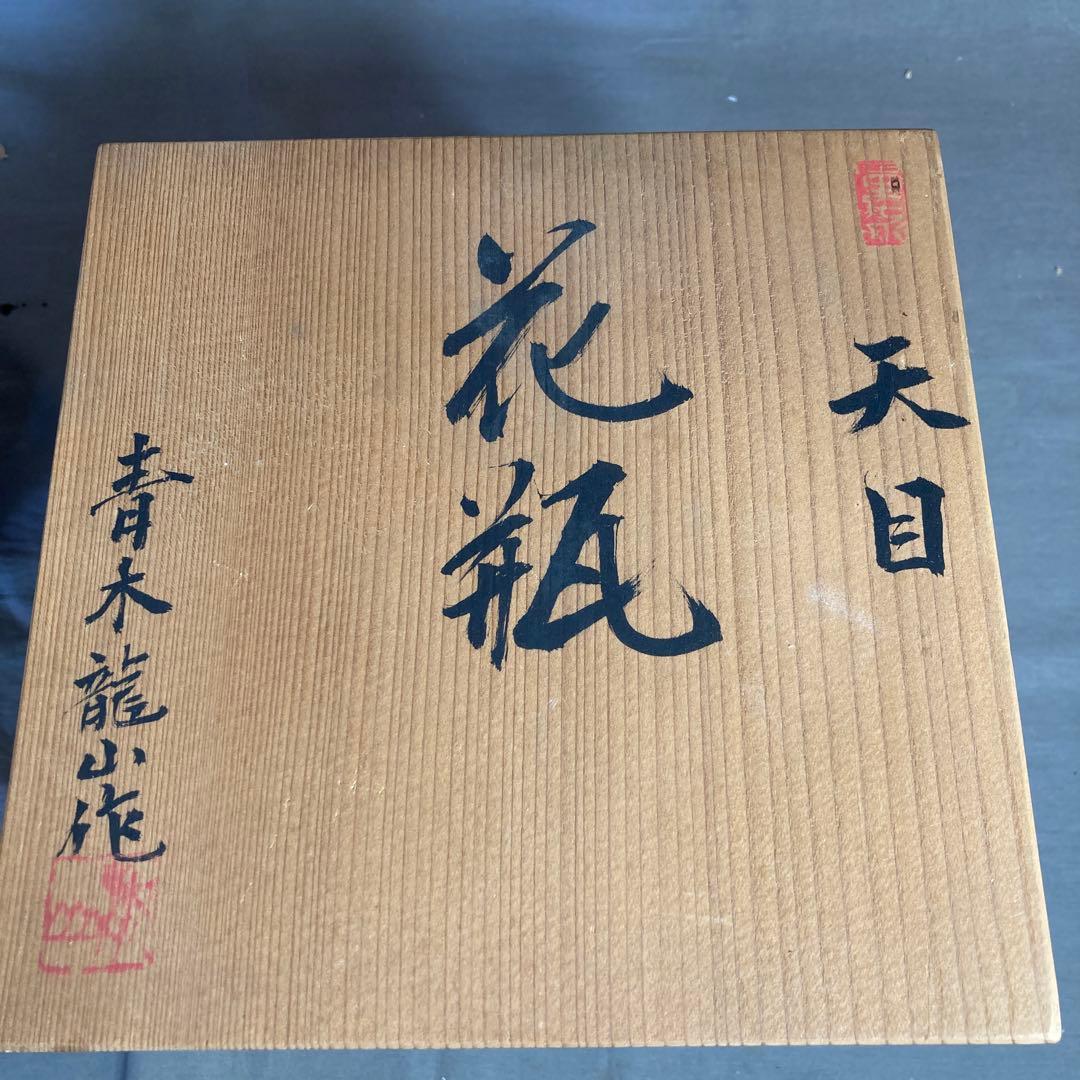 天目
花瓶
青木龍山作